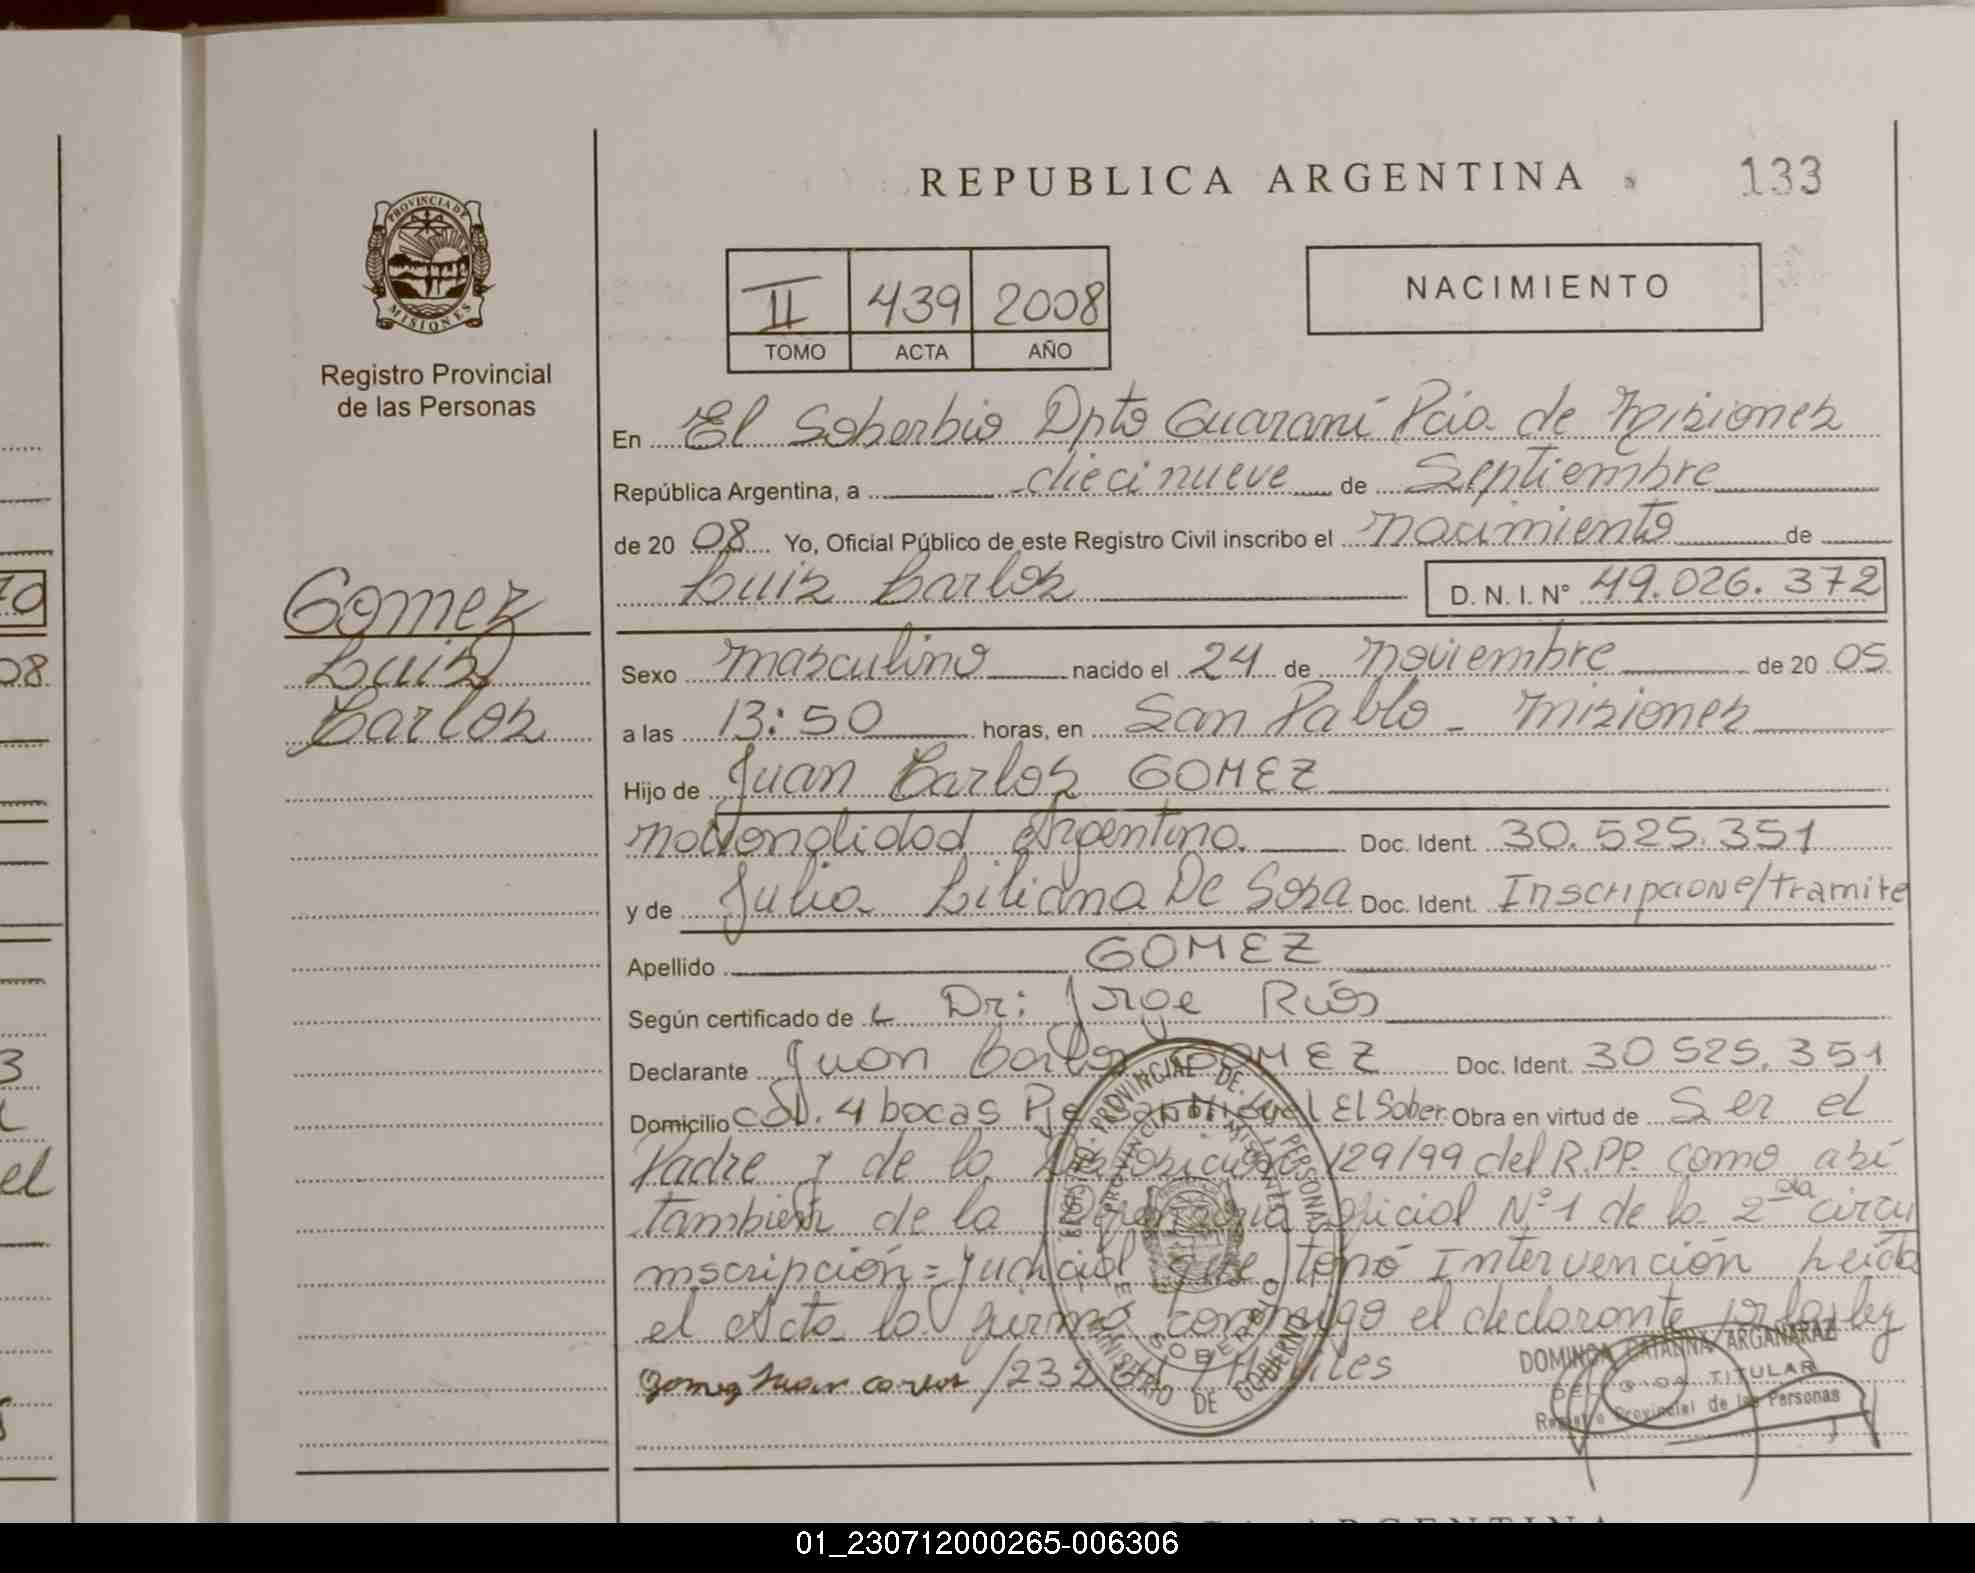 REPUBLICA ARGENTINA
133
PROVINCIA DE
MISIONES
Registro Provincial
de las Personas
II 439 2008
TOMO ACTA AÑO
NACIMIENTO
En El Soberbio Dpto Guaraní Pcia de Misiones
República Argentina, a diecinueve de Septiembre
de 2008 Yo, Oficial Público de este Registro Civil inscribo el nacimiento de
Luis Carlos D. N. I. N° 49.026.372
Gomez
Luis
Carlos
Sexo masculino nacido el 24 de noviembre de 2005
a las 13:50 horas, en San Pablo - Misiones
Hijo de Juan Carlos GOMEZ
nacionalidad Argentina. Doc. Ident. 30.525.351
y de Julia Liliana De Sosa Doc. Ident. Inscripcion e/tramite
Apellido GOMEZ
Según certificado de L Dr: Jorge Ríos
Declarante Juan Carlos GOMEZ Doc. Ident. 30 525.351
Domicilio Col. 4 bocas Pje San Miguel El Sober. Obra en virtud de Ser el
Padre y de la Disposición 129/99 del R.P.P. como así
también de la Defensoria Oficial N°1 de la 2da circu
nscripción = Judicial que tomó Intervención Leída
el Acta la firma conmigo el declarante
Gomez Juan carlos /232
REGISTRO PROVINCIAL DE LAS PERSONAS
PROVINCIA DE MISIONES
EL SOBERBIO
MINISTERIO DE GOBIERNO
DOMINGA CATALINA ARGAÑARAZ
DELEGADA TITULAR
Registro Provincial de las Personas
01_230712000265-006306